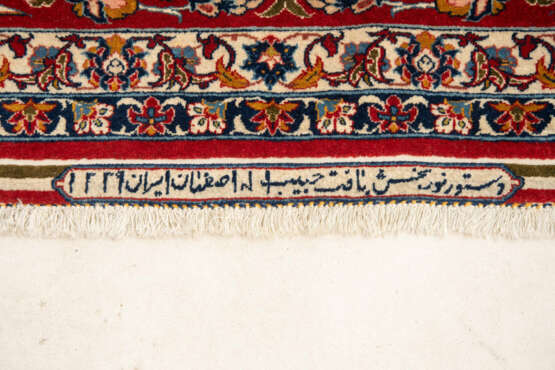 دستور نوربخش بافت حبیب اله اصفهان ایران ۱۳۴۹